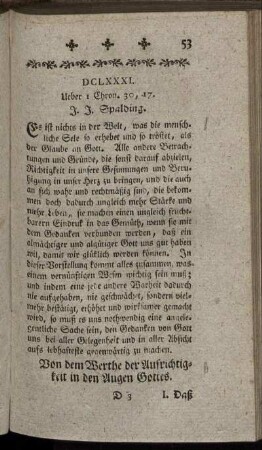 53
DCLXXXI.
Ueber 1 Chron. 30, 17.
J. J. Spalding.
Es ist nichts in der Welt, was die mensch-
liche Sele so erhebet und so tröstet, als
der Glaube an Gott. Alle andere Betrach-
tungen und Gründe, die sonst darauf abzielen,
Richtigkeit in unsere Gesinnungen und Beru-
higung in unser Herz zu bringen, und die auch
an sich wahr und rechtmäßig sind, die bekom-
men doch dadurch ungleich mehr Stärke und
mehr Leben, sie machen einen ungleich frucht-
barern Eindruck in das Gemüth, wenn sie mit
dem Gedanken verbunden werden, daß ein
allmächtiger und algütiger Gott uns gut haben
wil, damit wir glücklich werden können. In
dieser Vorstellung kommt alles zusammen, was
einem vernünftigen Wesen wichtig sein muß;
und indem eine jede andere Warheit dadurch
nie aufgehaben, nie geschwächt, sondern viel-
mehr bestätigt, erhöhet und wirksamer gemacht
wird, so muß es uns nothwendig eine angele-
gentliche Sache sein, den Gedanken von Gott
uns bei aller Gelegenheit und in aller Absicht
aufs lebhafteste gegenwärtig zu machen.
Von dem Werthe der Aufrichtig-
keit in den Augen Gottes.
D 3 I. Daß